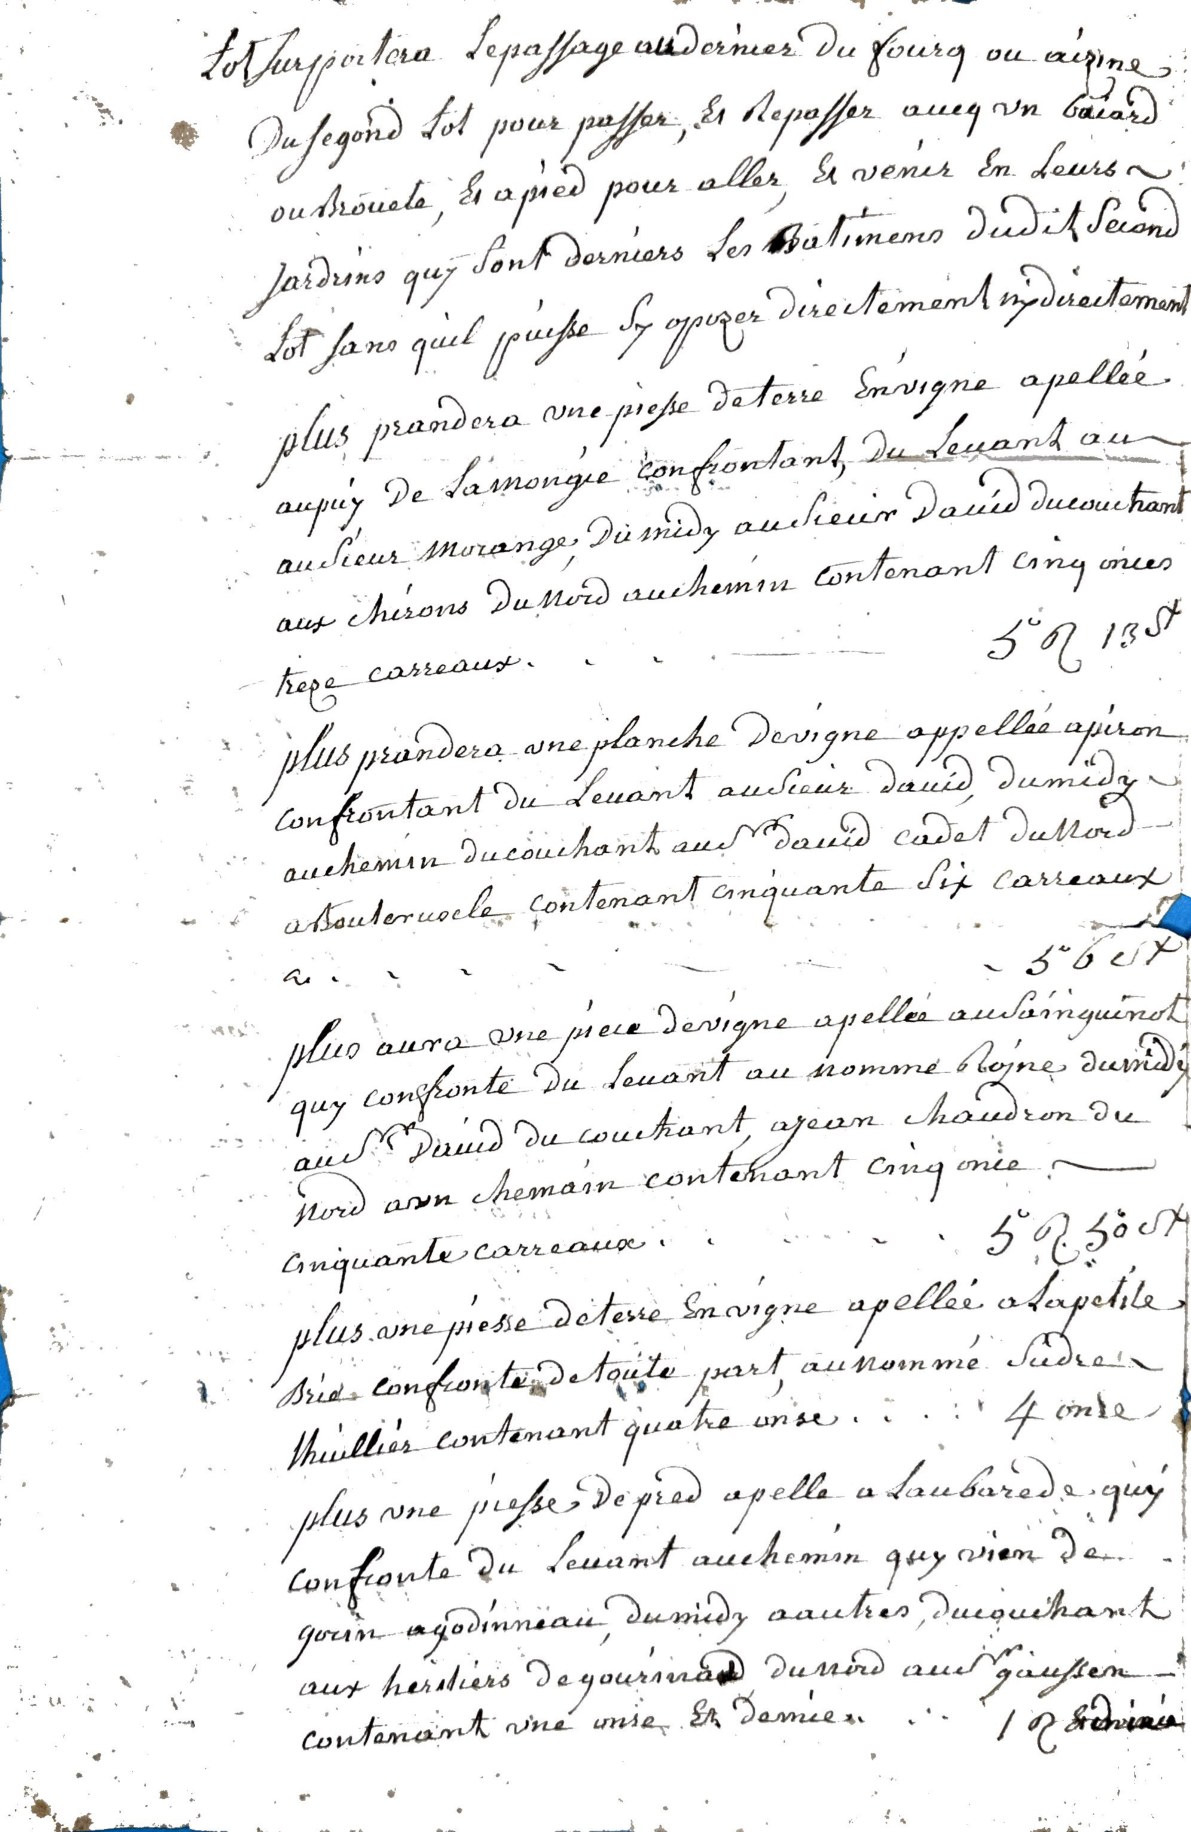 Lot surportera Lepassage audernier Du fourq ou airine
Dusegond Lot pour passer, Et Repasser aucq vn baiard
ou Brouete, Et apied pour aller, Et venir En Leurs
Jardrins quy Sont derniers Les Batimens dudit Second
Lot sans quil puisse Sy opozer directement nydirectement
plus prandera vne piesse deterre Envigne apellée
aupuy De Lamongie confrontant, du Leuant au
au Sieur Morange, Dumidy au Sieur Dauid ducouchant
aux chirons Du Nord auchemin contenant cinq onces
treze carreaux . . . 5 13
plus prandera vne planche Devigne appellée apiron
confrontant du Leuant au Sieur dauid, dumidy
auchemin ducouchant au Sr dauid cadet du Nord
a contenant cinquante Six carreaux
56
plus aura vne piece devigne apellée au Sainguinot
quy confronte Du Leuant au nommé Rojne dumidy
au Sr Dauid du couchant, ajean chaudron du
Nord avn chemain contenant cinq once
cinquante carreaux . . . 5 50
plus vne piesse deterre En vigne apellée a Lapetite
Brie confronte detoute part, aunommé Sudre
thuillier contenant quatre onse . . . . 4 onse
plus vne piesse De pred apelle a Laubarede quy
confronte du Leuant auchemin quy vien de
gorin agodinneau, dumidy aautres, ducouchant
aux heritiers de gourinaud du Nord au Sr gaussen
contenant vne onse Et demie . . . 1 Et demie